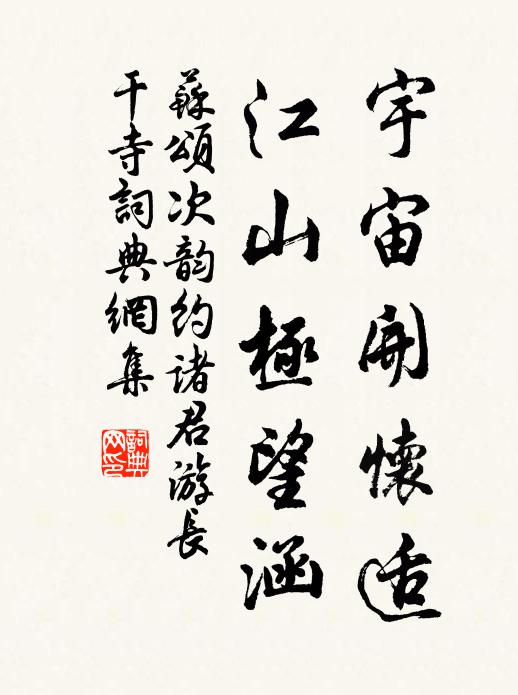 宇宙開懷适
江山極望涵
蘇頌次韵約諸君游長
干寺詞典網集
詞典
网印